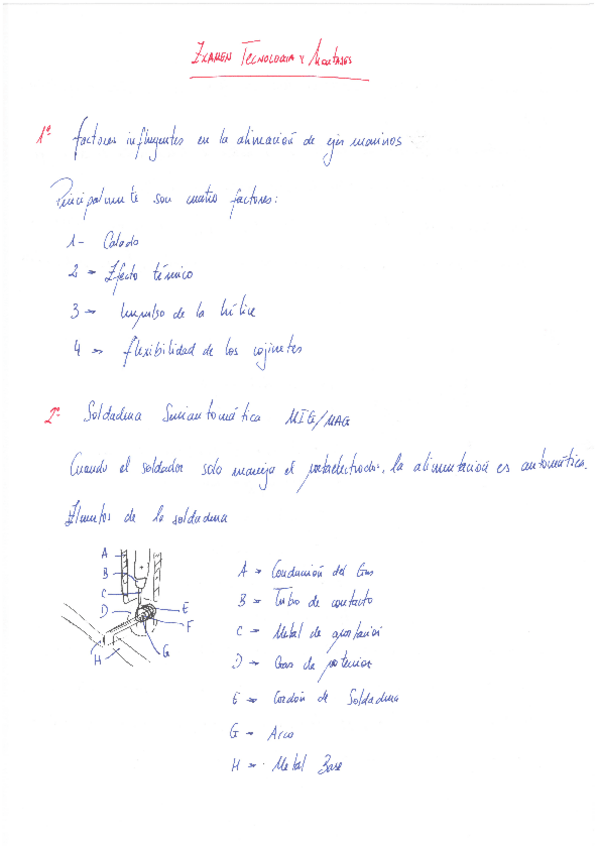 EXAMEN TECNOLOGIA Y MONTAJES
1º Factores influyentes en la alineación de ejes marinos
Principalmente son cuatro factores:
1- Calado
2 - Efecto térmico
3 - Impulso de la hélice
4 - flexibilidad de los cojinetes
2º Soldadura Semiautomática MIG/MAG
Cuando el soldador solo maneja el portaelectrodos, la alimentación es automática.
Elementos de la soldadura
A
B
C
D
E
F
G
H
A - Conducción del Gas
B - Tubo de contacto
C - Metal de aportación
D - Gas de
E - Cordón de Soldadura
G - Arco
H - Metal Base